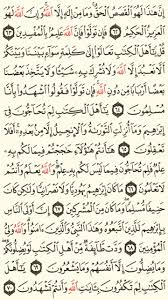 إِنَّ هَٰذَا لَهُوَ ٱلْقَصَصُ ٱلْحَقُّ وَمَا مِنْ إِلَٰهٍ إِلَّا ٱللَّهُ وَإِنَّ ٱللَّهَ لَهُوَ
ٱلْعَزِيزُ ٱلْحَكِيمُ ٦٢ فَإِن تَوَلَّوْا۟ فَإِنَّ ٱللَّهَ عَلِيمٌۢ بِٱلْمُفْسِدِينَ
٦٣ قُلْ يَٰٓأَهْلَ ٱلْكِتَٰبِ تَعَالَوْا۟ إِلَىٰ كَلِمَةٍ سَوَآءٍۭ بَيْنَنَا وَبَيْنَكُمْ
أَلَّا نَعْبُدَ إِلَّا ٱللَّهَ وَلَا نُشْرِكَ بِهِۦ شَيْـًٔا وَلَا يَتَّخِذَ بَعْضُنَا
بَعْضًا أَرْبَابًا مِّن دُونِ ٱللَّهِ فَإِن تَوَلَّوْا۟ فَقُولُوا۟ ٱشْهَدُوا۟ بِأَنَّا
مُسْلِمُونَ ٦٤ يَٰٓأَهْلَ ٱلْكِتَٰبِ لِمَ تُحَآجُّونَ فِىٓ
إِبْرَٰهِيمَ وَمَآ أُنزِلَتِ ٱلتَّوْرَىٰةُ وَٱلْإِنجِيلُ إِلَّا مِنۢ بَعْدِهِۦٓ أَفَلَا
تَعْقِلُونَ ٦٥ هَٰٓأَنتُمْ هَٰٓؤُلَآءِ حَٰجَجْتُمْ فِيمَا لَكُم بِهِۦ عِلْمٌ فَلِمَ
تُحَآجُّونَ فِيمَا لَيْسَ لَكُم بِهِۦ عِلْمٌ وَٱللَّهُ يَعْلَمُ وَأَنتُمْ
لَا تَعْلَمُونَ ٦٦ مَا كَانَ إِبْرَٰهِيمُ يَهُودِيًّا وَلَا نَصْرَانِيًّا وَلَٰكِن كَانَ
حَنِيفًا مُّسْلِمًا وَمَا كَانَ مِنَ ٱلْمُشْرِكِينَ ٦٧ إِنَّ أَوْلَى ٱلنَّاسِ
بِإِبْرَٰهِيمَ لَلَّذِينَ ٱتَّبَعُوهُ وَهَٰذَا ٱلنَّبِىُّ وَٱلَّذِينَ ءَامَنُوا۟ وَٱللَّهُ وَلِىُّ
ٱلْمُؤْمِنِينَ ٦٨ وَدَّت طَّآئِفَةٌ مِّنْ أَهْلِ ٱلْكِتَٰبِ لَوْ يُضِلُّونَكُمْ
وَمَا يُضِلُّونَ إِلَّآ أَنفُسَهُمْ وَمَا يَشْعُرُونَ ٦٩ يَٰٓأَهْلَ
ٱلْكِتَٰبِ لِمَ تَكْفُرُونَ بِـَٔايَٰتِ ٱللَّهِ وَأَنتُمْ تَشْهَدُونَ ٧٠